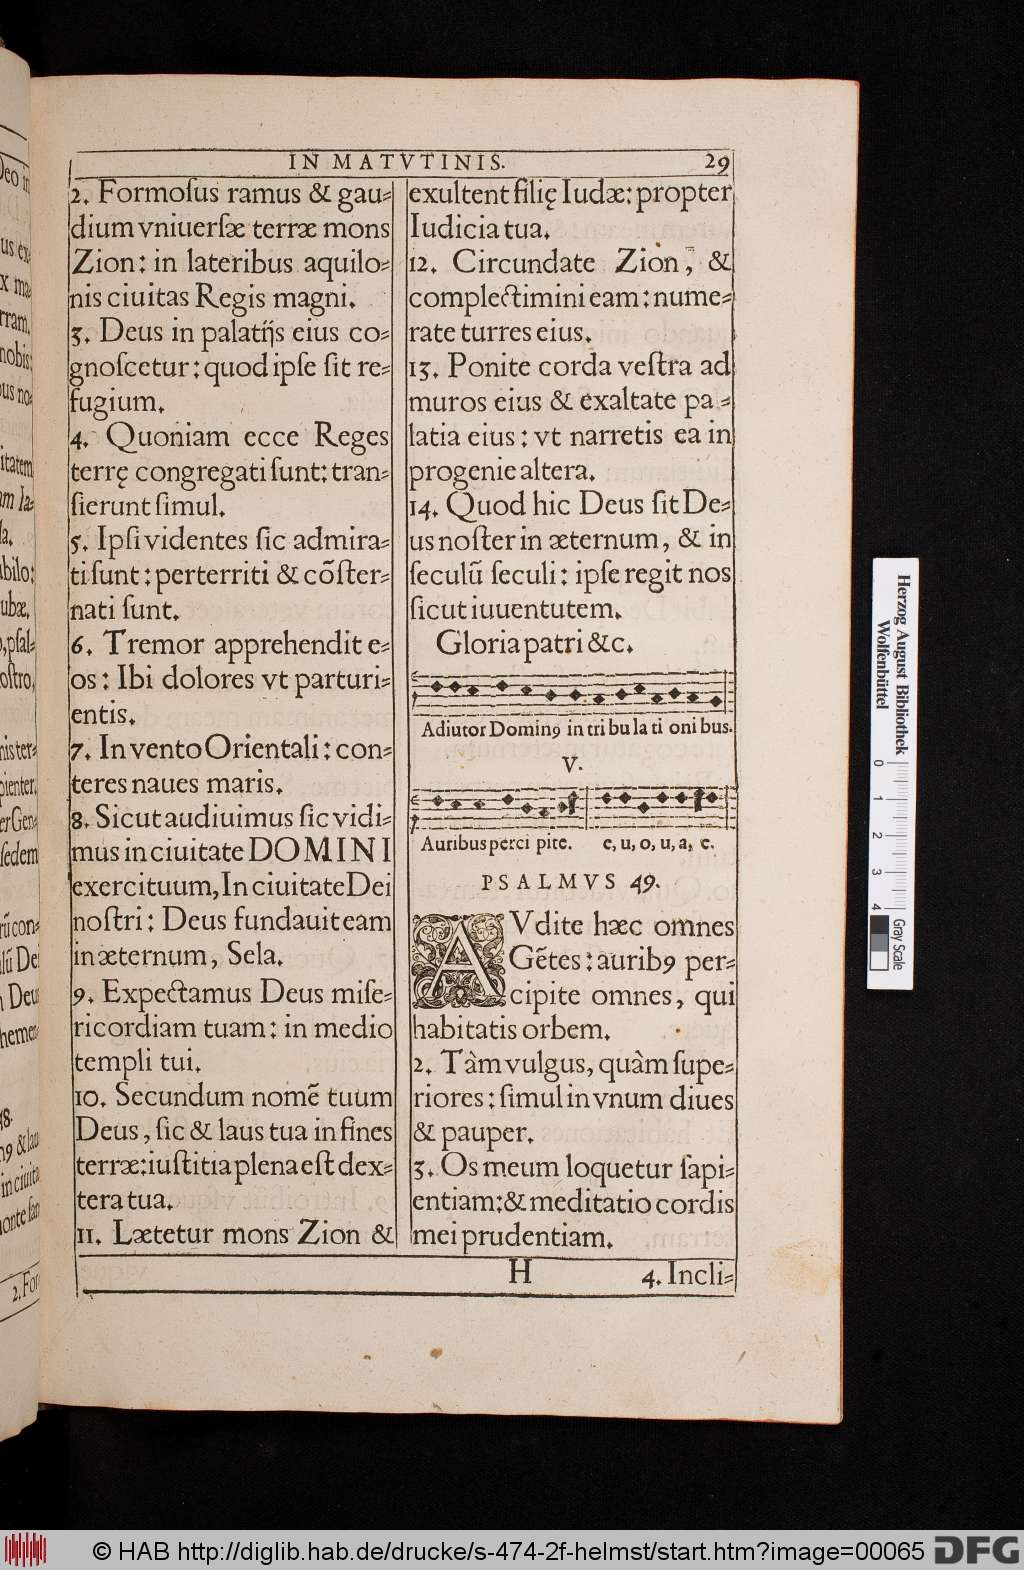 IN MATVTINIS. 29
2. Formoſus ramus & gau⸗
dium vniuerſæ terræ mons
Zion: in lateribus aquilo⸗
nis ciuitas Regis magni.
3. Deus in palatijs eius co⸗
gnoſcetur: quod ipſe ſit re⸗
fugium.
4. Quoniam ecce Reges
terrę congregati ſunt: tran⸗
ſierunt ſimul.
5. Ipſi videntes ſic admira⸗
ti ſunt: perterriti & cõſter⸗
nati ſunt.
6. Tremor apprehendit e⸗
os: Ibi dolores vt parturi⸗
entis.
7. In vento Orientali: con⸗
teres naues maris.
8. Sicut audiuimus ſic vidi⸗
mus in ciuitate DOMINI
exercituum, In ciuitate Dei
noſtri: Deus fundauit eam
in æternum, Sela.
9. Expectamus Deus miſe⸗
ricordiam tuam: in medio
templi tui.
10. Secundum nomẽ tuum
Deus, ſic & laus tua in fines
terræ: iuſtitia plena eſt dex⸗
tera tua.
11. Lætetur mons Zion &
exultent filię Iudæ: propter
Iudicia tua.
12. Circundate Zion, &
complectimini eam: nume⸗
rate turres eius.
13. Ponite corda veſtra ad
muros eius & exaltate pa⸗
latia eius: vt narretis ea in
progenie altera.
14. Quod hic Deus ſit De⸗
us noſter in æternum, & in
ſeculũ ſeculi: ipſe regit nos
ſicut iuuentutem.
Gloria patri &c.
Adiutor Dominꝰ in tri bu la ti oni bus.
V.
Auribus perci pite. e, u, o, u, a, e.
PSALMVS 49.
AVdite hæc omnes
Gẽtes: auribꝰ per⸗
cipite omnes, qui
habitatis orbem.
2. Tàm vulgus, quàm ſupe⸗
riores: ſimul in vnum diues
& pauper.
3. Os meum loquetur ſapi⸗
entiam: & meditatio cordis
mei prudentiam.
H 4. Incli⸗
Herzog August Bibliothek
Wolfenbüttel
0 1 2 3 4
Gray Scale
© HAB http://diglib.hab.de/drucke/s-474-2f-helmst/start.htm?image=00065 DFG